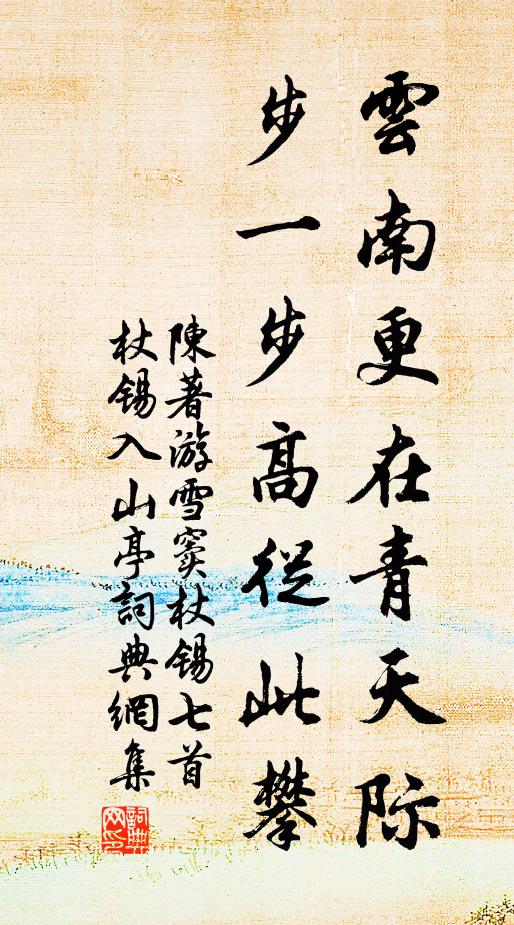 雲南更在青天际
步一步高從此攀
陳著游雪竇杖錫七首
杖錫入山亭詞典網集
詞典網印